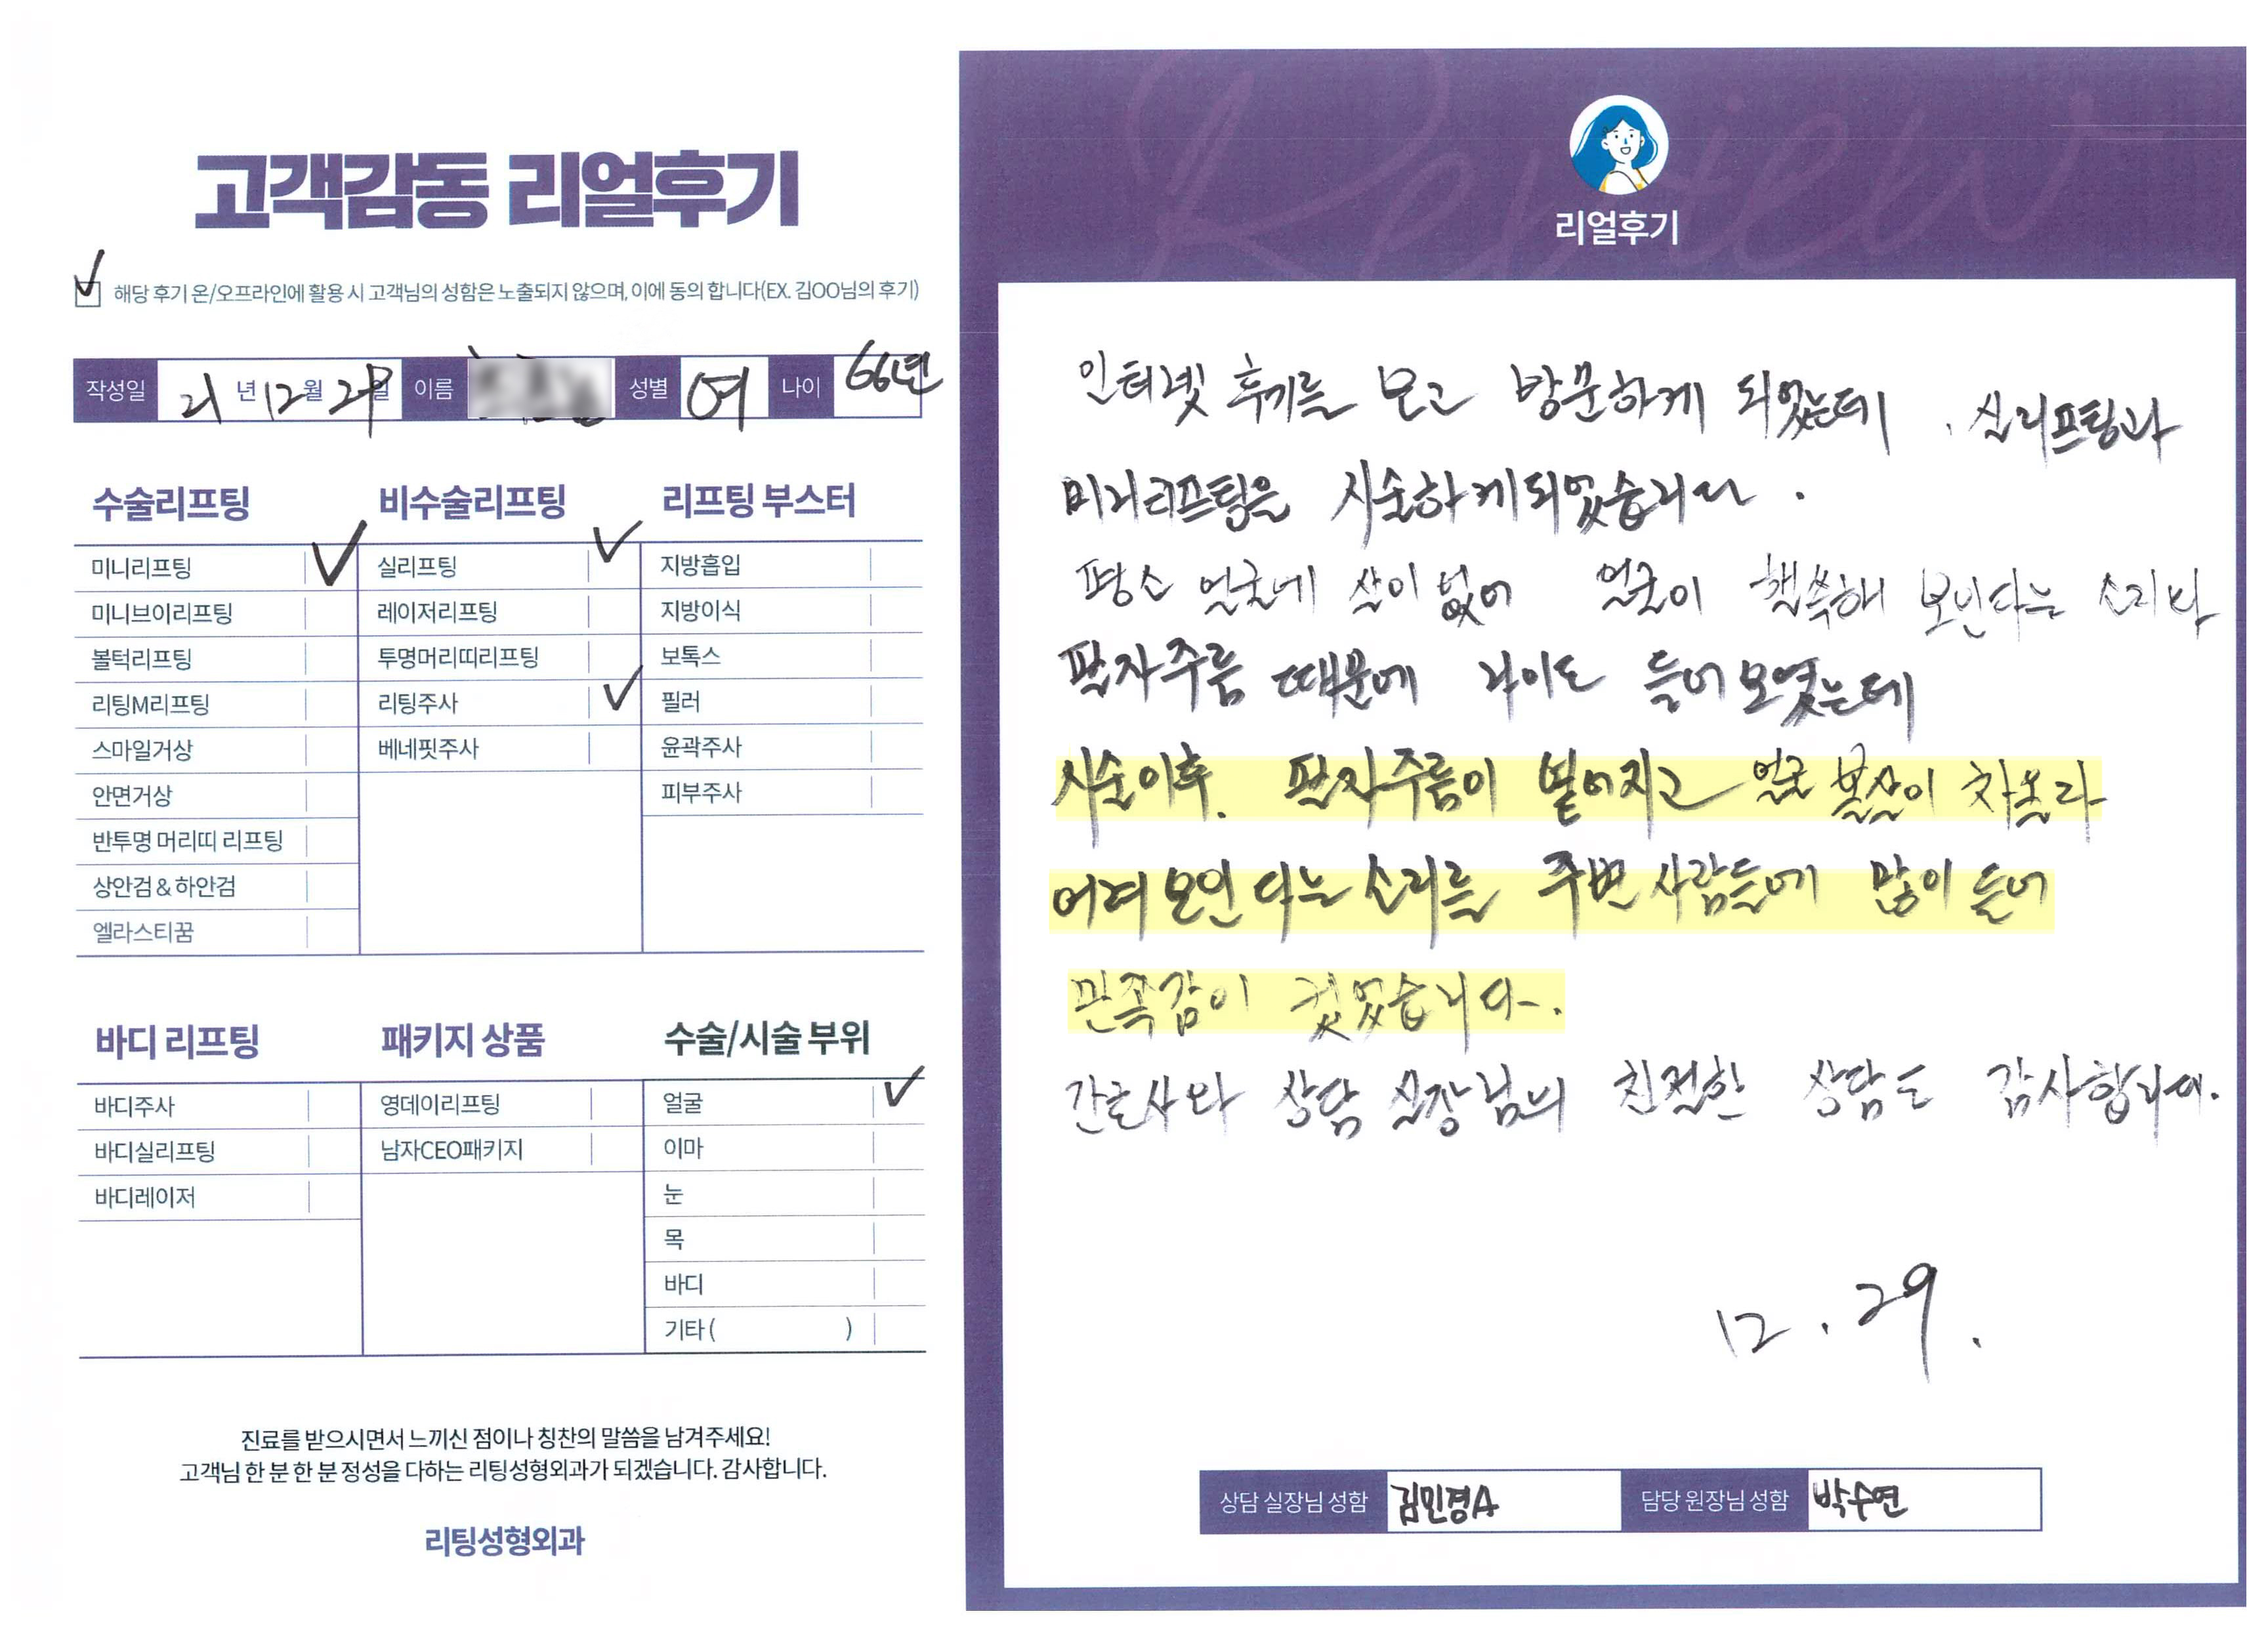 고객감동 리얼후기
해당 후기 온/오프라인에 활용 시 고객님의 성함은 노출되지 않으며, 이에 동의 합니다(EX. 김OO님의 후기)
작성일 21 년 12 월 29 일 이름 성별 여 나이 66년
수술리프팅
미니리프팅
미니브이리프팅
볼턱리프팅
리팅M리프팅
스마일거상
안면거상
반투명 머리띠 리프팅
상안검 & 하안검
엘라스티꿈
비수술리프팅
실리프팅
레이저리프팅
투명머리띠리프팅
리팅주사
베네핏주사
리프팅 부스터
지방흡입
지방이식
보톡스
필러
윤곽주사
피부주사
바디 리프팅
바디주사
바디실리프팅
바디레이저
패키지 상품
영데이리프팅
남자CEO패키지
수술/시술 부위
얼굴
이마
눈
목
바디
기타 ( )
진료를 받으시면서 느끼신 점이나 칭찬의 말씀을 남겨주세요!
고객님 한 분 한 분 정성을 다하는 리팅성형외과가 되겠습니다. 감사합니다.
리팅성형외과
Review
리얼후기
인터넷 후기를 보고 방문하게 되었는데, 실리프팅과
미니리프팅을 시술하게되었습니다.
평소 얼굴에 살이 없어 얼굴이 핼쑥해 보인다는 소리와
팔자주름 때문에 나이도 들어보였는데
시술이후. 팔자주름이 옅어지고 얼굴 볼살이 차올라
어려 보인다는 소리를 주변 사람들에게 많이 들어
만족감이 컸었습니다.
간호사와 상담 실장님의 친절한 상담도 감사합니다.
12. 29.
상담 실장님 성함 김민경A 담당 원장님 성함 박수연